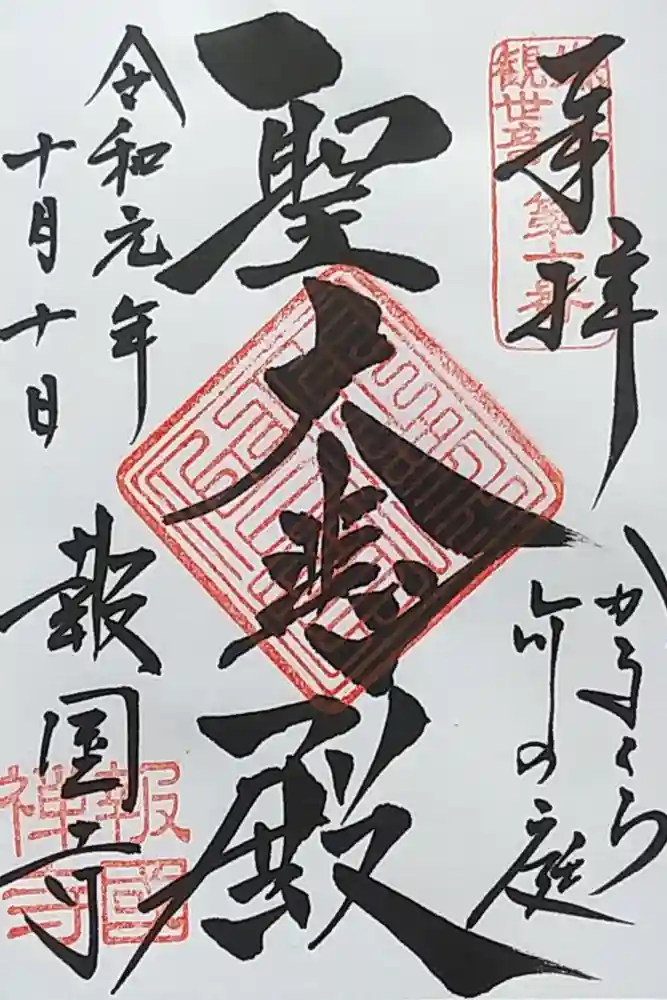 奉拝
観世音
第十番
かまくら
竹の庭
聖大悲殿
令和元年
十月十日
報国寺
報國
禅寺